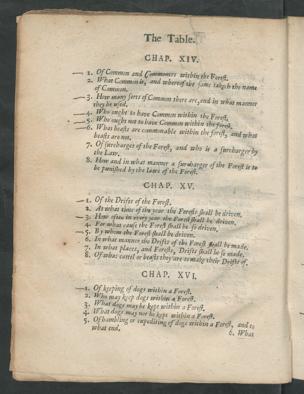 The Table.
CHAP. XIV.
1. Of Common and Commoners within the Forest.
2. What Common is, and whereof the same taketh the name
of Common.
3. How many sorts of Common there are, and in what manner
they be used.
4. Who ought to have Common within the Forest.
5. Who ought not to have Common within the Forest.
6. What beasts are commonable within the forest, and what
beasts are not.
7. Of surcharges of the Forest, and who is a surcharger by
the Law.
8. How and in what manner a surcharger of the Forest is to
be punished by the laws of the Forest.
CHAP. XV.
1. Of the Drifts of the Forest.
2. At what time of the year the Forests shall be driven.
3. How often in every year the Forest shall be driven.
4. For what cause the Forest shall be so driven.
5. By whom the Forest shall be driven.
6. In what manner the Drifts of the Forest shall be made.
7. In what places, and Forests, Drifts shall be so made.
8. Of what cattel or beasts they are to make their Drifts of.
CHAP. XVI.
1. Of keeping of dogs within a Forest.
2. Who may keep dogs within a Forest.
3. What dogs may be kept within a Forest.
4. What dogs may not be kept within a Forest.
5. Of hambling or expediting of dogs within a Forest, and to
what end.
6. What